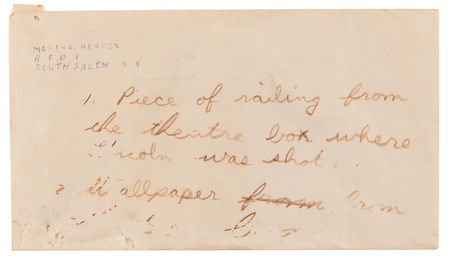 MARTHA HERRON
R F D 1
SOUTH SALEM N Y
1. Piece of railing from
the theatre box where
ncoln was shot.
allpaper from from